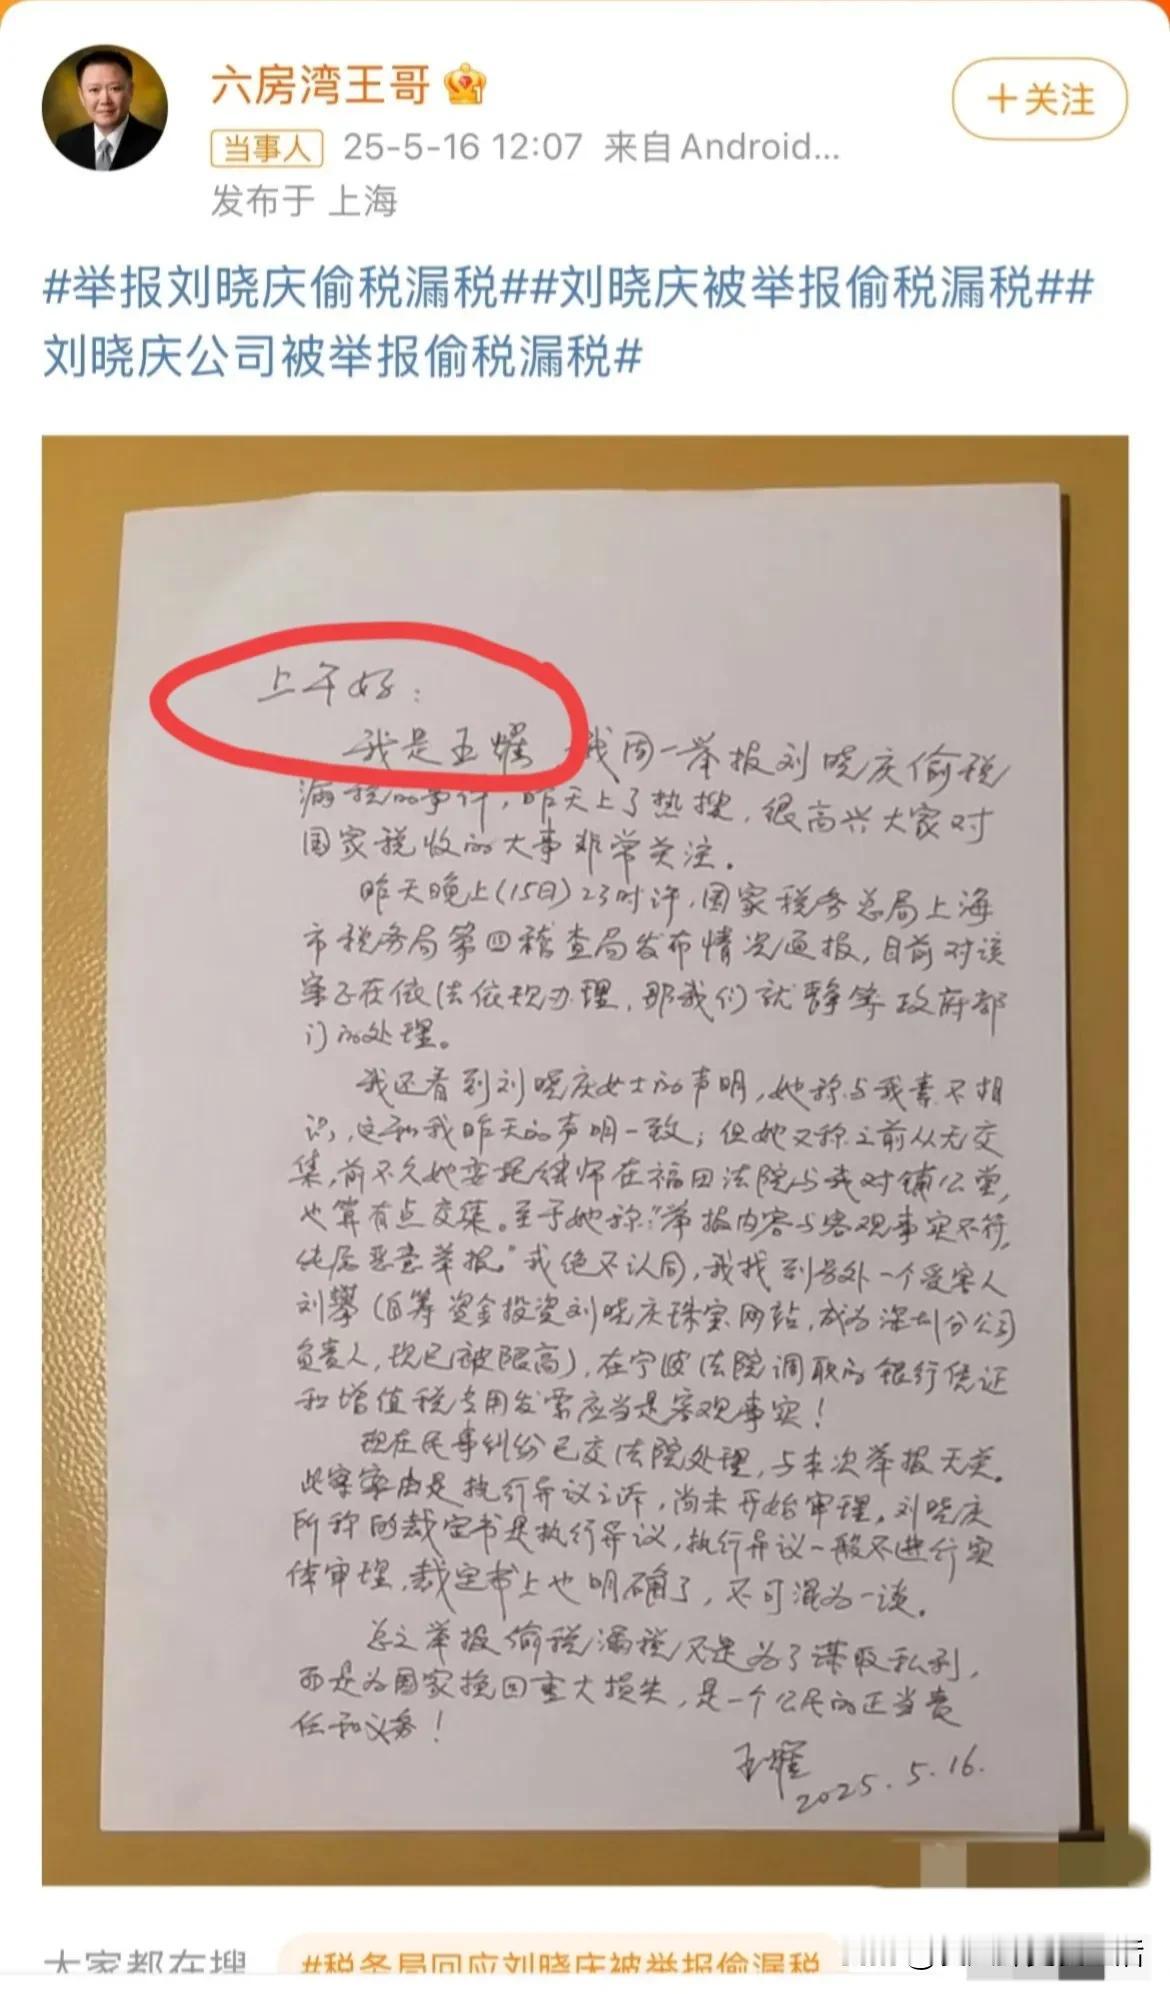 六房湾王哥
+关注
当事人 25-5-16 12:07 来自 Android...
发布于 上海
#举报刘晓庆偷税漏税##刘晓庆被举报偷税漏税##
刘晓庆公司被举报偷税漏税#
上午好:
我是王耀 我周一举报刘晓庆偷税
漏税的事件,昨天上了热搜,很高兴大家对
国家税收的大事非常关注。
昨天晚上(15日)23时许,国家税务总局上海
市税务局第四稽查局发布情况通报,目前对该
案子在依法依规办理,那我们就静等政府部
门的处理。
我还看到刘晓庆女士的声明,她称与我素不相
识,这和我昨天的声明一致;但她又称之前从无交
集,前不久她委托律师在福田法院与我对铺公堂,
也算有点交集。至于她称:"举报内容与客观事实不符,
纯属恶意举报。"我绝不认同,我找到另外一个受害人
刘攀(自筹资金投资刘晓庆珠宝网站,成为深圳分公司
负责人,现已被限高),在宁波法院调取的银行凭证
和增值税专用发票应当是客观事实!
现在民事纠纷已交法院处理,与本次举报无关。
此案案由是执行异议之诉,尚未开始审理,刘晓庆
所称的裁定书是执行异议,执行异议一般不进行实
体审理,裁定书上也明确了,不可混为一谈。
总之举报偷税漏税不是为了谋取私利,
而是为国家挽回重大损失,是一个公民的正当责
任和义务!
王耀
2025.5.16.
大家都在搜 #税务局回应刘晓庆被举报偷漏税